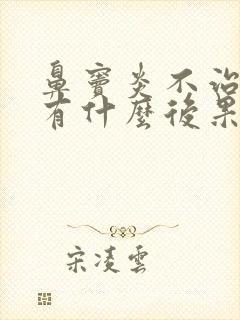 鼻竇炎不治
有什麼後果
宋凌雲